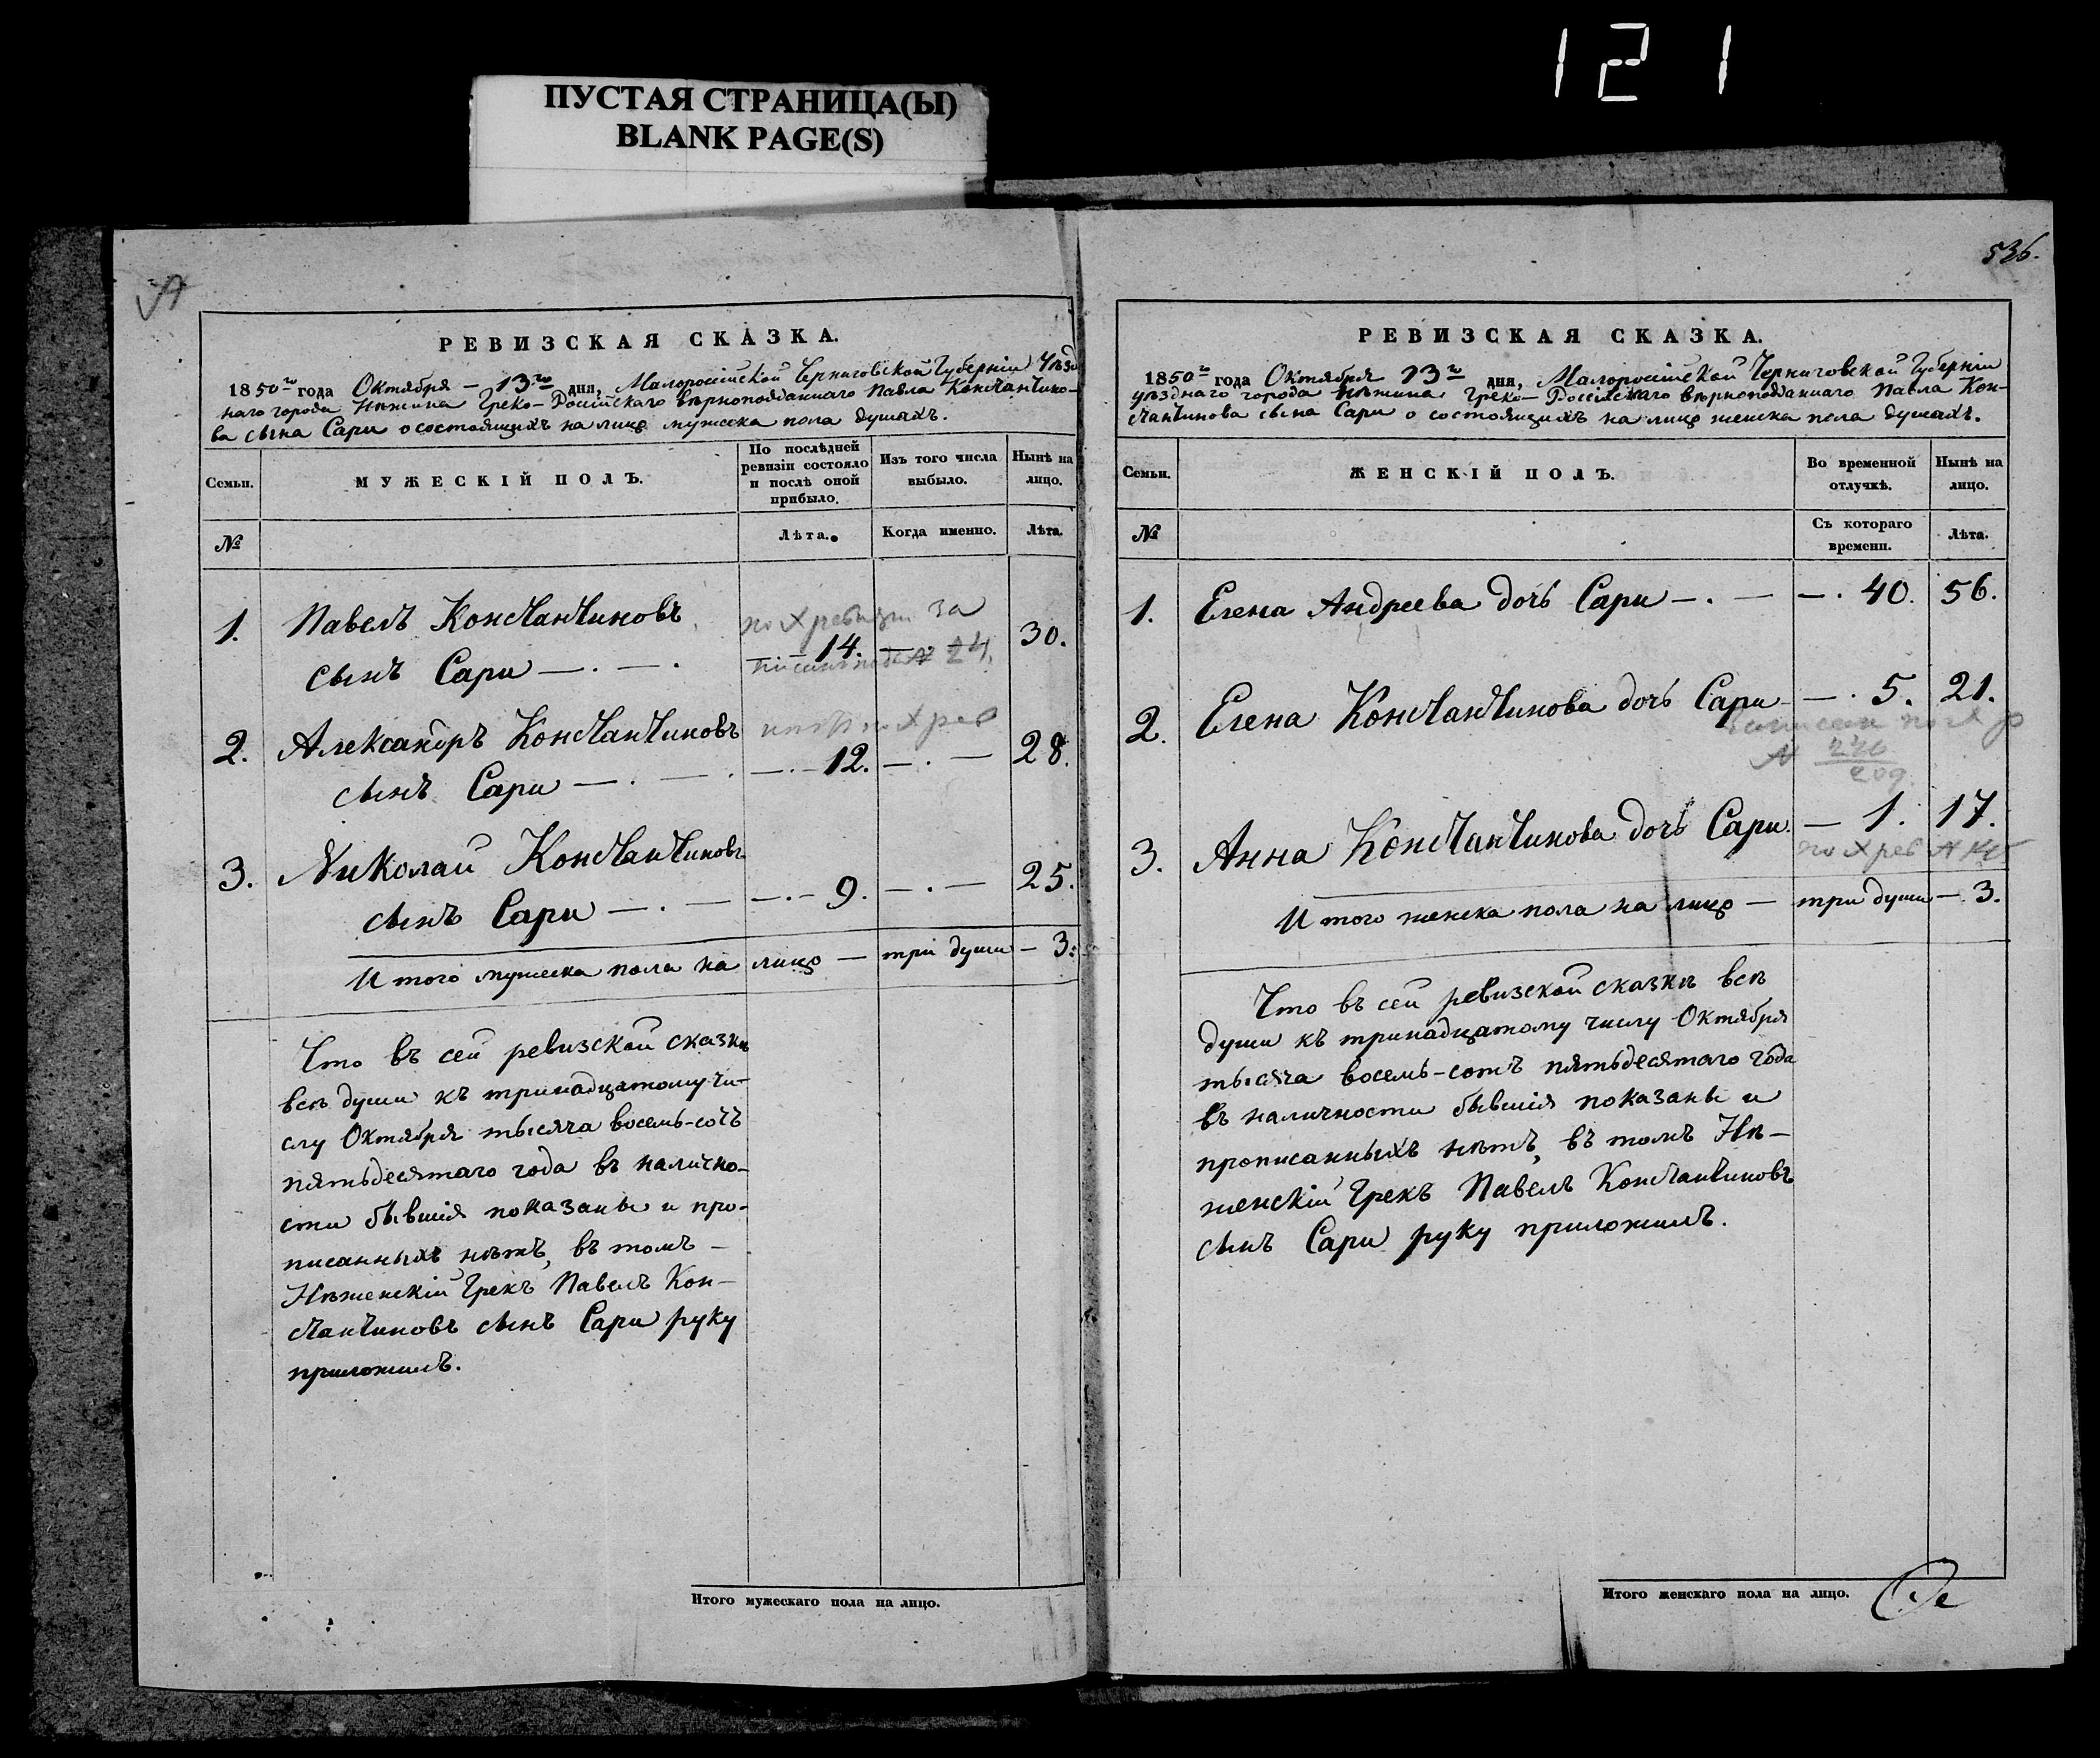 121
ПУСТАЯ СТРАНИЦА(Ы)
BLANK PAGE(S)
РЕВИЗСКАЯ СКАЗКА.
1850го года Октября – 13го дня, Малороссійской Черниговской Губерніи Уѣзд
наго города Нѣжина Греко-Россійскаго вѣрноподданнаго Павла Константино-
ва сына Сари о состоящихъ на лицо мужска пола душахъ.
Семьи.
МУЖЕСКІЙ ПОЛЪ.
По послѣдней ревизіи состояло и послѣ оной прибыло.
Изъ того числа выбыло.
Нынѣ на лицо.
№
Лѣта.
Когда именно.
Лѣта.
1. Павелъ Константиновъ
по X ревизіи за
сынъ Сари — . — . 14. — 30.
№ 24.
2. Александръ Константиновъ
по X рев
сынъ Сари — . — . — . – 12. — . — 28.
3. Николай Константиновъ
сынъ Сари — . — — . – 9. — . — 25.
И того мужска пола на лицо — три души – 3.
Что въ сей ревизской сказкѣ
всѣ души къ тринадцатому чи-
слу Октября тысяча восемь-сотъ
пятьдесятаго года въ налично-
сти бывшія показаны и про-
писанныхъ нѣтъ, въ томъ –
Нѣженскій Грекъ Павелъ Кон-
стантиновъ сынъ Сари руку
приложилъ.
Итого мужескаго пола на лицо.
536.
РЕВИЗСКАЯ СКАЗКА.
1850го года Октября 13го дня, Малороссійской Черниговской Губерніи
уѣзднаго города Нѣжина Греко-Россійскаго вѣрноподданнаго Павла Кон-
стантинова сына Сари о состоящихъ на лицо женска пола душахъ.
Семьи.
ЖЕНСКІЙ ПОЛЪ.
Во временной отлучкѣ.
Нынѣ на лицо.
№
Съ котораго времени.
Лѣта.
1. Елена Андреева дочь Сари — . — — . 40. 56.
2. Елена Константинова дочь Сари — . 5. 21.
№
3. Анна Константинова дочь Сари. — 1. 17.
по X рев №
И того женска пола на лицо — три души — 3.
Что въ сей ревизской сказкѣ всѣ
души къ тринадцатому числу Октября
тысяча восемь-сотъ пятьдесятаго года
въ наличности бывшія показаны и
прописанныхъ нѣтъ, въ томъ Нѣ-
женскій Грекъ Павелъ Константиновъ
сынъ Сари руку приложилъ.
Итого женскаго пола на лицо.